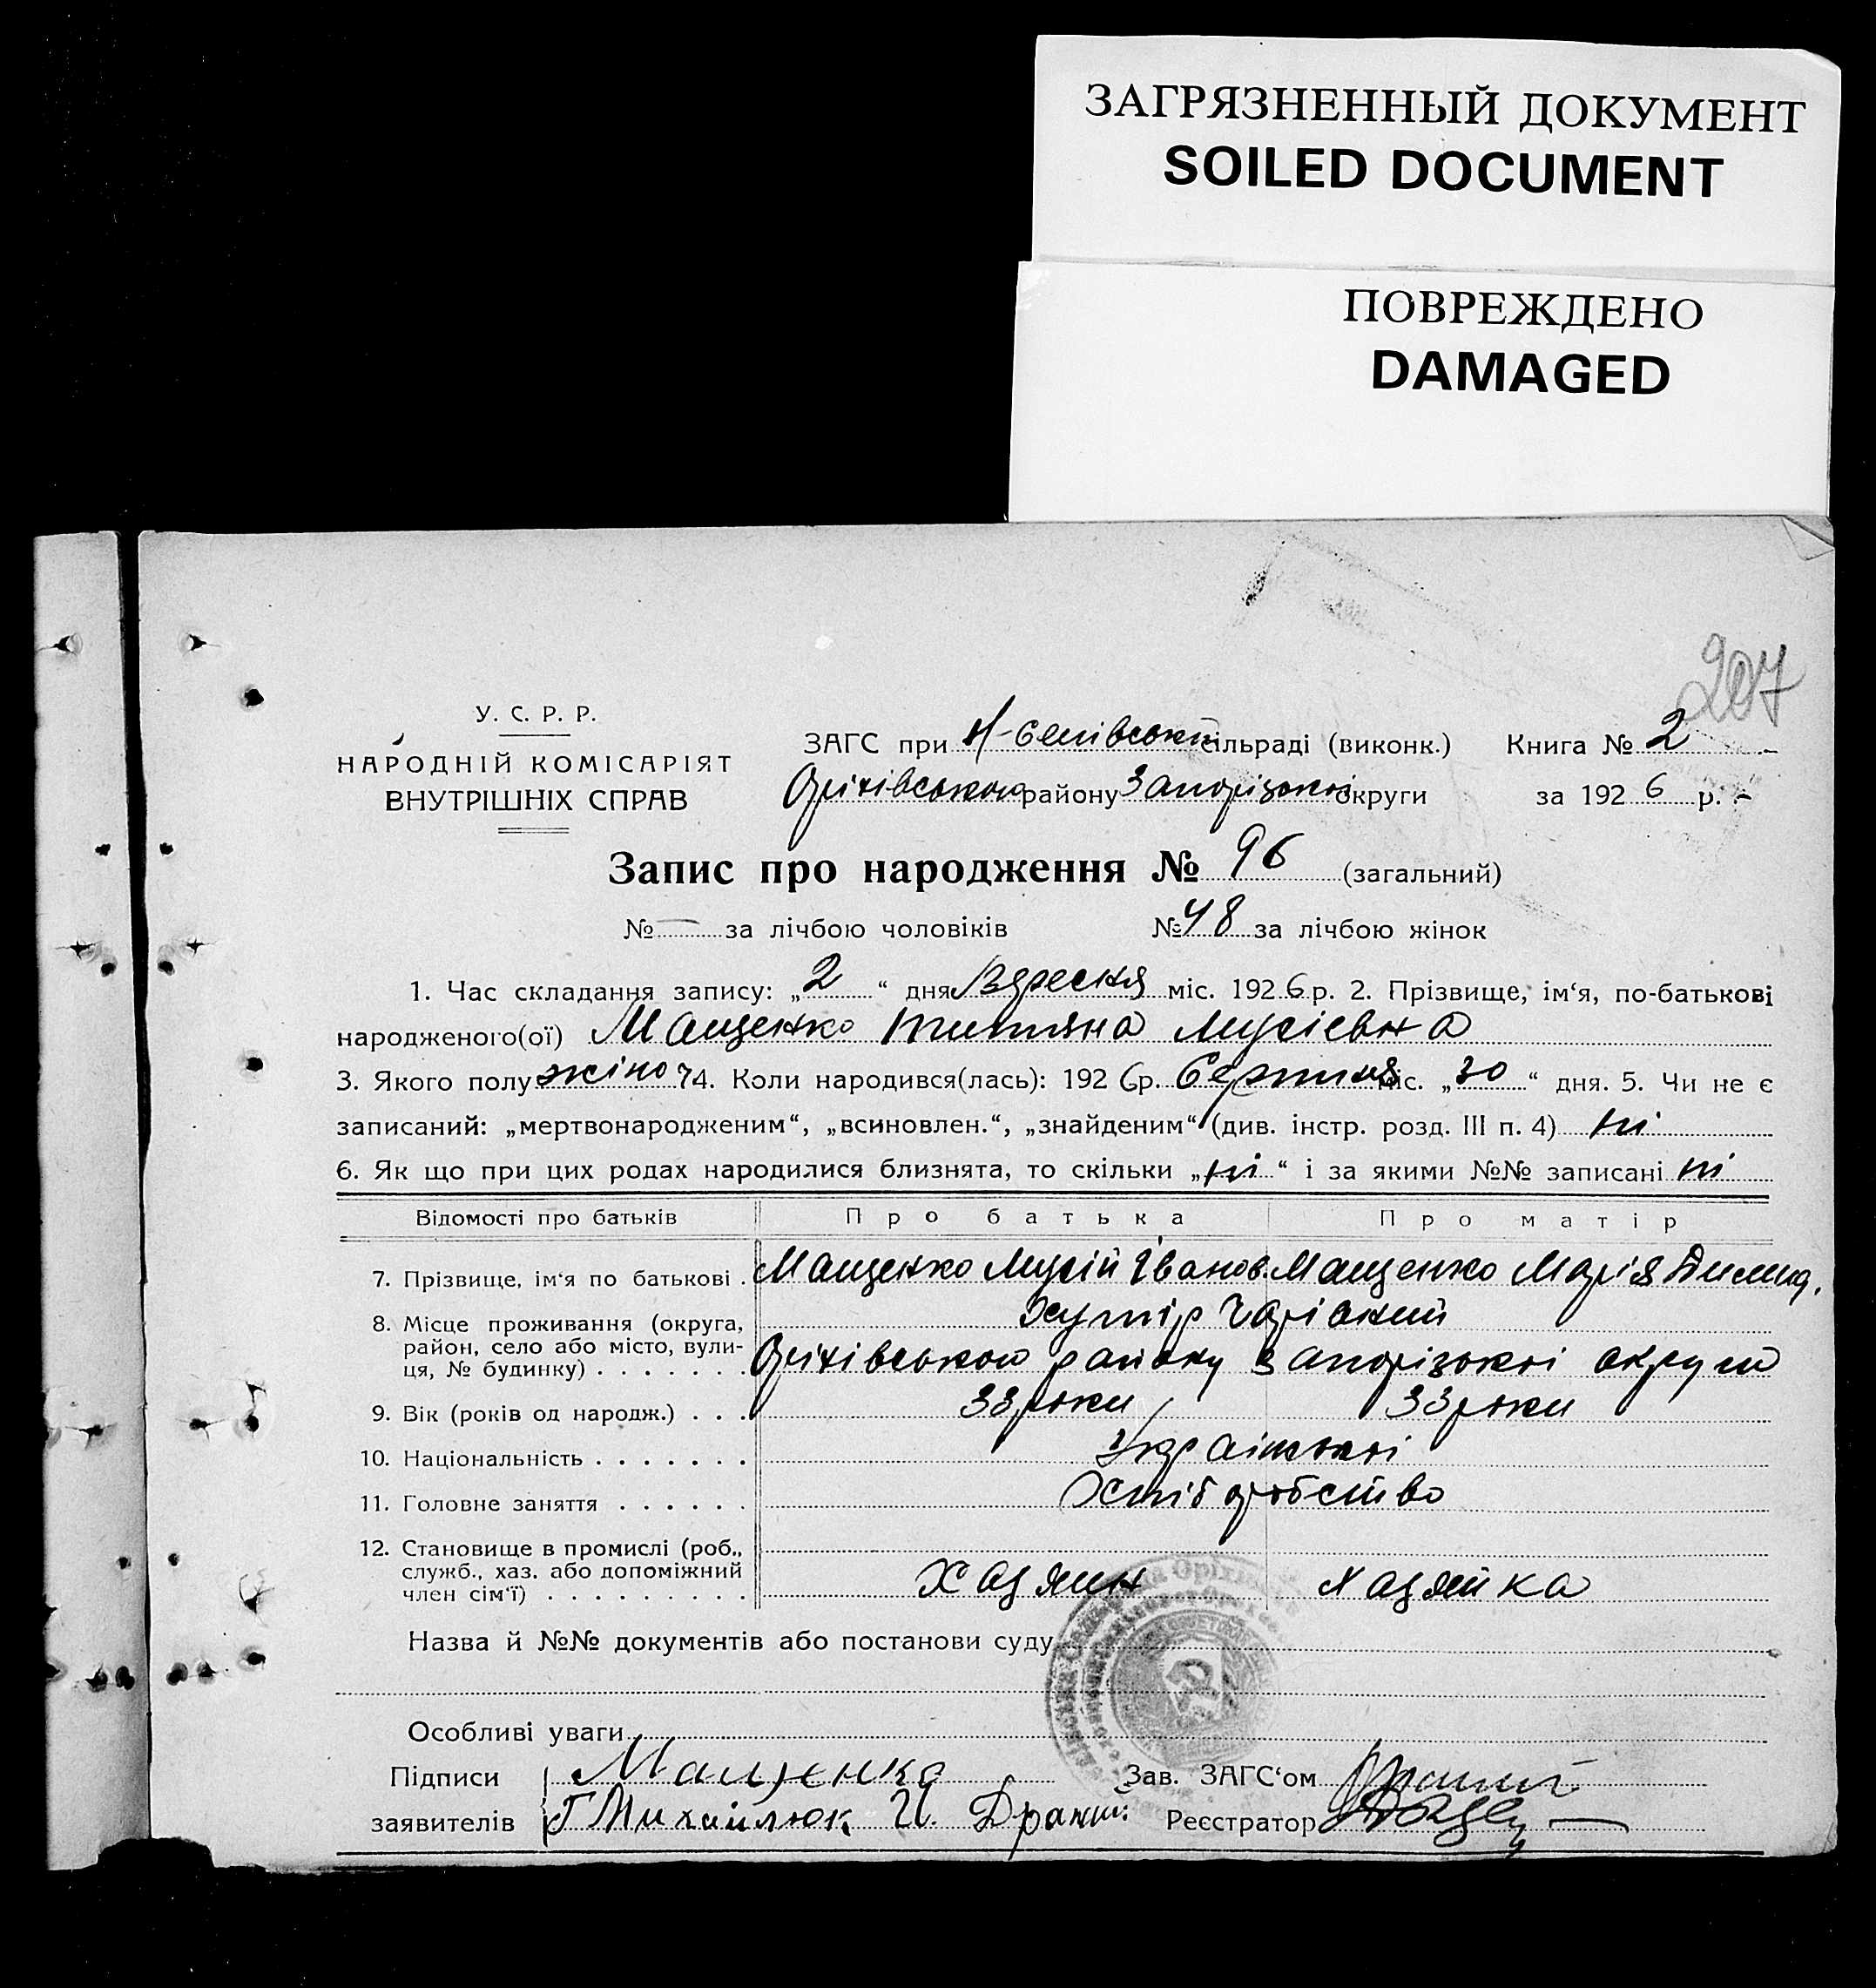 ЗАГРЯЗНЕННЫЙ ДОКУМЕНТ
SOILED DOCUMENT
ПОВРЕЖДЕНО
DAMAGED
207
У. С. Р. Р.
НАРОДНІЙ КОМІСАРІЯТ
ВНУТРІШНІХ СПРАВ
ЗАГС при сільраді (виконк.) Книга № 2
Оріхівського району Запорізької округи за 1926 р.
Запис про народження № 96 (загальний)
№ — за лічбою чоловіків № 48 за лічбою жінок
1. Час складання запису: „2“ дня Вересня міс. 1926 р. 2. Прізвище, ім‘я, по-батькові
народженого(ої) Мащенко Титяна Мусієвна
3. Якого полу жіно 4. Коли народився(лась): 1926 р. Серпня міс. „30“ дня. 5. Чи не є
записаний: „мертвонародженим“, „всиновлен.“, „знайденим“ (див. інстр. розд. III п. 4) ні
6. Як що при цих родах народилися близнята, то скільки „ні“ і за якими №№ записані ні
Відомості про батьків Про батька Про матір
7. Прізвище, ім‘я по батькові . Мащенко Мусій Іванов. Мащенко Марія
8. Місце проживання (округа, Хутір
район, село або місто, вули-
ця, № будинку) . . . . . . . Оріхівського району Запорізької округи
9. Вік (років од народж.) . . . 33 роки 33 роки
10. Національність . . . . . . . Українські
11. Головне заняття . . . . . . Хліборобство
12. Становище в промислі (роб.,
служб., хаз. або допоміжний Хазяин Хазяйка
член сім‘ї) . . . . . . . . .
Назва й №№ документів або постанови суду
Особливі уваги
Підписи Мащенко Зав. ЗАГС‘ом
заявителів Г Михайлюк И. Реєстратор